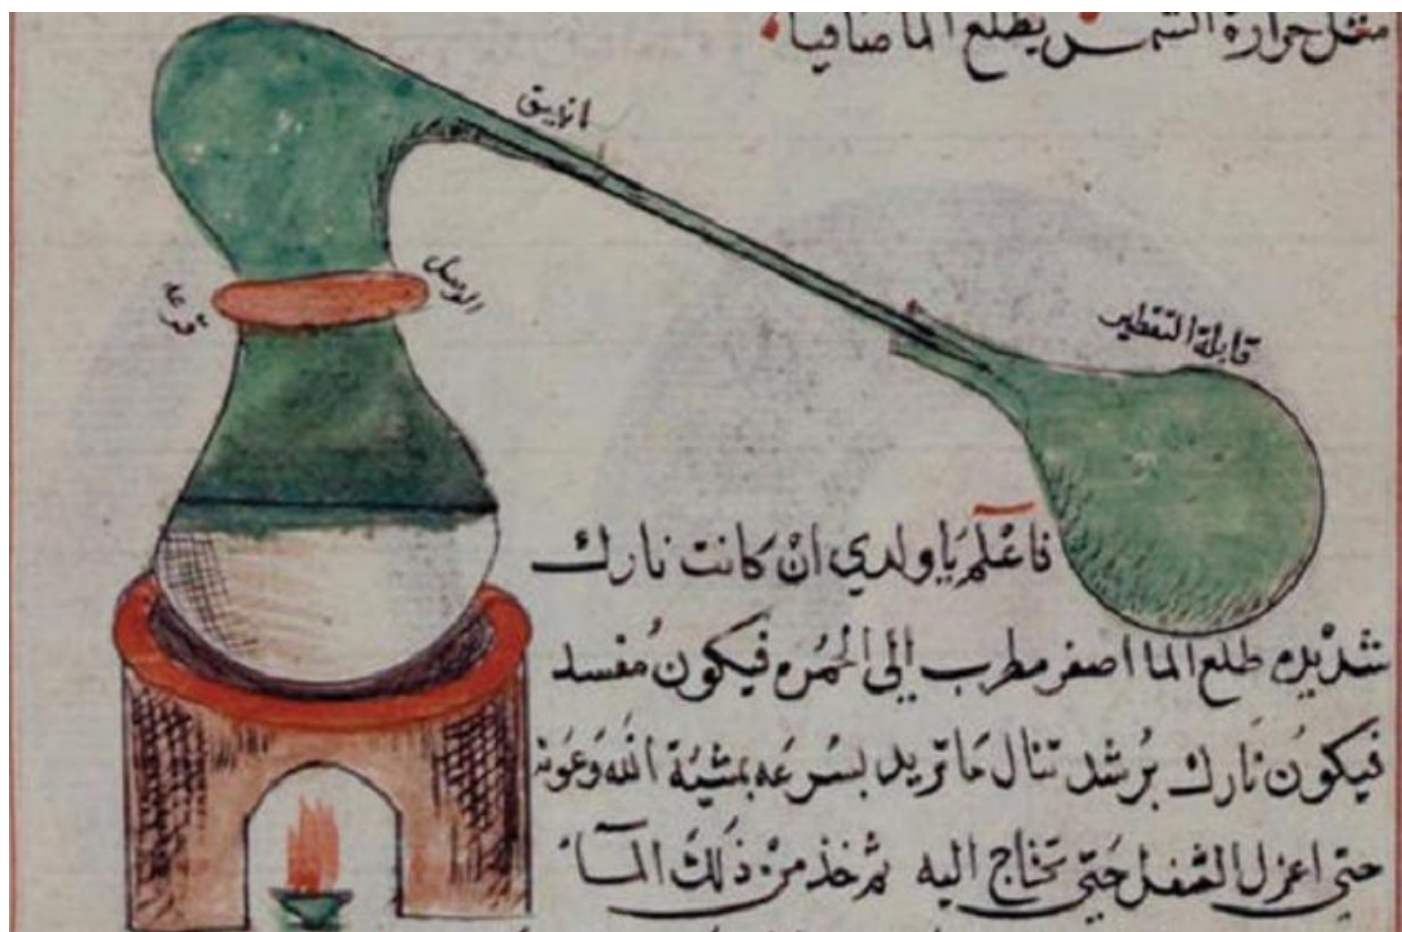 مثل حرارة الشمس يطلع الما صافيا
انبيق
الوصل
قرعه
قابلة التقطير
فاعْلم يَا ولدي انْ كانت نارك
شدْيده طلع الما اصفر مطرب إلى الحُمره فيكون مُفسد
فيكون نَارك بُرشد تنال مَا تريد بسُرعَه بمشيَة الله وَعَونه
حتى اعزل الثفل حَتي تحتاج اليه ثم خذ منْ ذَلكَ المآء